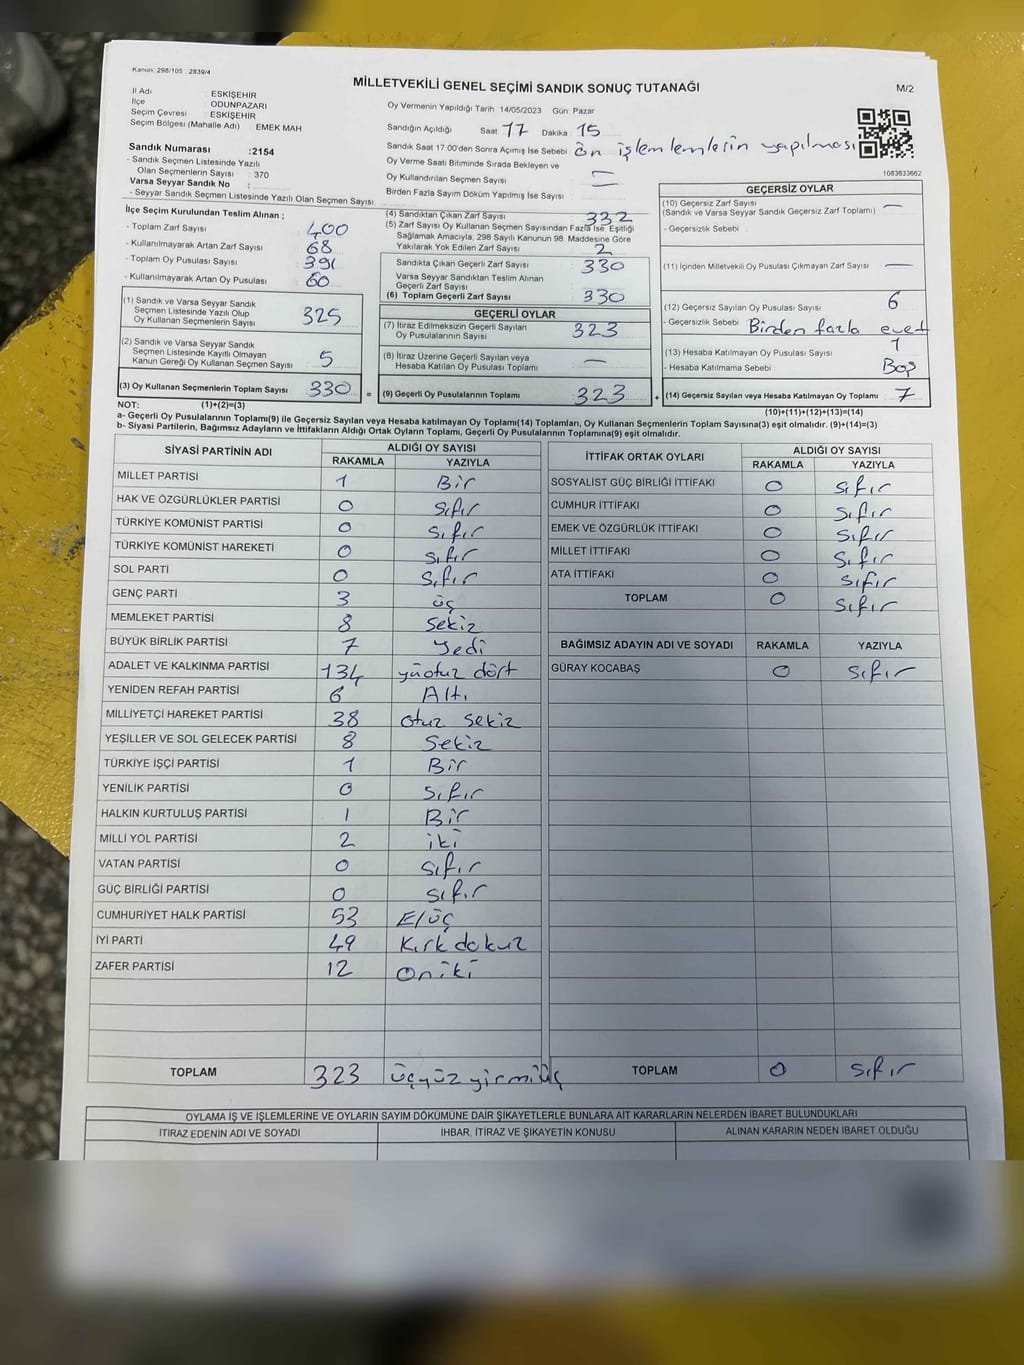 Kanun: 298/105 : 2839/4
MİLLETVEKİLİ GENEL SEÇİMİ SANDIK SONUÇ TUTANAĞI
M/2
İl Adı : ESKİŞEHİR
İlçe : ODUNPAZARI
Seçim Çevresi : ESKİŞEHİR
Seçim Bölgesi (Mahalle Adı) : EMEK MAH
Sandık Numarası :2154
- Sandık Seçmen Listesinde Yazılı
Olan Seçmenlerin Sayısı : 370
Varsa Seyyar Sandık No :
- Seyyar Sandık Seçmen Listesinde Yazılı Olan Seçmen Sayısı:
Oy Vermenin Yapıldığı Tarih 14/05/2023 Gün: Pazar
Sandığın Açıldığı Saat 17 Dakika : 15
Sandık Saat 17.00'den Sonra Açımış İse Sebebi: Ön işlemlemlerin yapılması
Oy Verme Saati Bitiminde Sırada Bekleyen ve
Oy Kullandırılan Seçmen Sayısı : —
Birden Fazla Sayım Döküm Yapılmış İse Sayısı : —
1083633662
İlçe Seçim Kurulundan Teslim Alınan ;
- Toplam Zarf Sayısı : 400
- Kullanılmayarak Artan Zarf Sayısı : 68
- Toplam Oy Pusulası Sayısı : 391
- Kullanılmayarak Artan Oy Pusulası : 60
(1) Sandık ve Varsa Seyyar Sandık
Seçmen Listesinde Yazılı Olup
Oy Kullanan Seçmenlerin Sayısı : 325
(2) Sandık ve Varsa Seyyar Sandık
Seçmen Listesinde Kayıtlı Olmayan
Kanun Gereği Oy Kullanan Seçmen Sayısı : 5
(3) Oy Kullanan Seçmenlerin Toplam Sayısı : 330 =
(4) Sandıktan Çıkan Zarf Sayısı : 332
(5) Zarf Sayısı Oy Kullanan Seçmen Sayısından Fazla İse, Eşitliği
Sağlamak Amacıyla, 298 Sayılı Kanunun 98. Maddesine Göre
Yakılarak Yok Edilen Zarf Sayısı : 2
Sandıkta Çıkan Geçerli Zarf Sayısı : 330
Varsa Seyyar Sandıktan Teslim Alınan
Geçerli Zarf Sayısı :
(6) Toplam Geçerli Zarf Sayısı : 330
GEÇERLİ OYLAR
(7) İtiraz Edilmeksizin Geçerli Sayılan
Oy Pusulalarının Sayısı : 323
(8) İtiraz Üzerine Geçerli Sayılan veya
Hesaba Katılan Oy Pusulası Toplamı : —
(9) Geçerli Oy Pusulalarının Toplamı : 323 +
GEÇERSİZ OYLAR
(10) Geçersiz Zarf Sayısı : —
(Sandık ve Varsa Seyyar Sandık Geçersiz Zarf Toplamı)
- Geçersizlik Sebebi :
(11) İçinden Milletvekili Oy Pusulası Çıkmayan Zarf Sayısı : —
(12) Geçersiz Sayılan Oy Pusulası Sayısı : 6
- Geçersizlik Sebebi : Birden fazla evet
(13) Hesaba Katılmayan Oy Pusulası Sayısı : 1
- Hesaba Katılmama Sebebi : Boş
(14) Geçersiz Sayılan veya Hesaba Katılmayan Oy Toplamı : 7
NOT: (1)+(2)=(3)
(10)+(11)+(12)+(13)=(14)
a- Geçerli Oy Pusulalarının Toplamı(9) ile Geçersiz Sayılan veya Hesaba katılmayan Oy Toplamı(14) Toplamları, Oy Kullanan Seçmenlerin Toplam Sayısına(3) eşit olmalıdır. (9)+(14)=(3)
b- Siyasi Partilerin, Bağımsız Adayların ve İttifakların Aldığı Ortak Oyların Toplamı, Geçerli Oy Pusulalarının Toplamına(9) eşit olmalıdır.
SİYASİ PARTİNİN ADI ALDIĞI OY SAYISI
RAKAMLA YAZIYLA
MİLLET PARTİSİ 1 Bir
HAK VE ÖZGÜRLÜKLER PARTİSİ 0 sıfır
TÜRKİYE KOMÜNİST PARTİSİ 0 sıfır
TÜRKİYE KOMÜNİST HAREKETİ 0 sıfır
SOL PARTİ 0 sıfır
GENÇ PARTİ 3 üç
MEMLEKET PARTİSİ 8 Sekiz
BÜYÜK BİRLİK PARTİSİ 7 Yedi
ADALET VE KALKINMA PARTİSİ 134 yüotuz dört
YENİDEN REFAH PARTİSİ 6 Altı
MİLLİYETÇİ HAREKET PARTİSİ 38 otuz sekiz
YEŞİLLER VE SOL GELECEK PARTİSİ 8 Sekiz
TÜRKİYE İŞÇİ PARTİSİ 1 Bir
YENİLİK PARTİSİ 0 sıfır
HALKIN KURTULUŞ PARTİSİ 1 Bir
MİLLİ YOL PARTİSİ 2 iki
VATAN PARTİSİ 0 sıfır
GÜÇ BİRLİĞİ PARTİSİ 0 sıfır
CUMHURİYET HALK PARTİSİ 53 Elüç
İYİ PARTİ 49 Kırk dokuz
ZAFER PARTİSİ 12 oniki
TOPLAM 323 üçyüz yirmiüç
İTTİFAK ORTAK OYLARI ALDIĞI OY SAYISI
RAKAMLA YAZIYLA
SOSYALİST GÜÇ BİRLİĞİ İTTİFAKI 0 sıfır
CUMHUR İTTİFAKI 0 sıfır
EMEK VE ÖZGÜRLÜK İTTİFAKI 0 sıfır
MİLLET İTTİFAKI 0 sıfır
ATA İTTİFAKI 0 sıfır
TOPLAM 0 sıfır
BAĞIMSIZ ADAYIN ADI VE SOYADI RAKAMLA YAZIYLA
GÜRAY KOCABAŞ 0 sıfır
TOPLAM 0 sıfır
OYLAMA İŞ VE İŞLEMLERİNE VE OYLARIN SAYIM DÖKÜMÜNE DAİR ŞİKAYETLERLE BUNLARA AİT KARARLARIN NELERDEN İBARET BULUNDUKLARI
İTİRAZ EDENİN ADI VE SOYADI İHBAR, İTİRAZ VE ŞİKAYETİN KONUSU ALINAN KARARIN NEDEN İBARET OLDUĞU